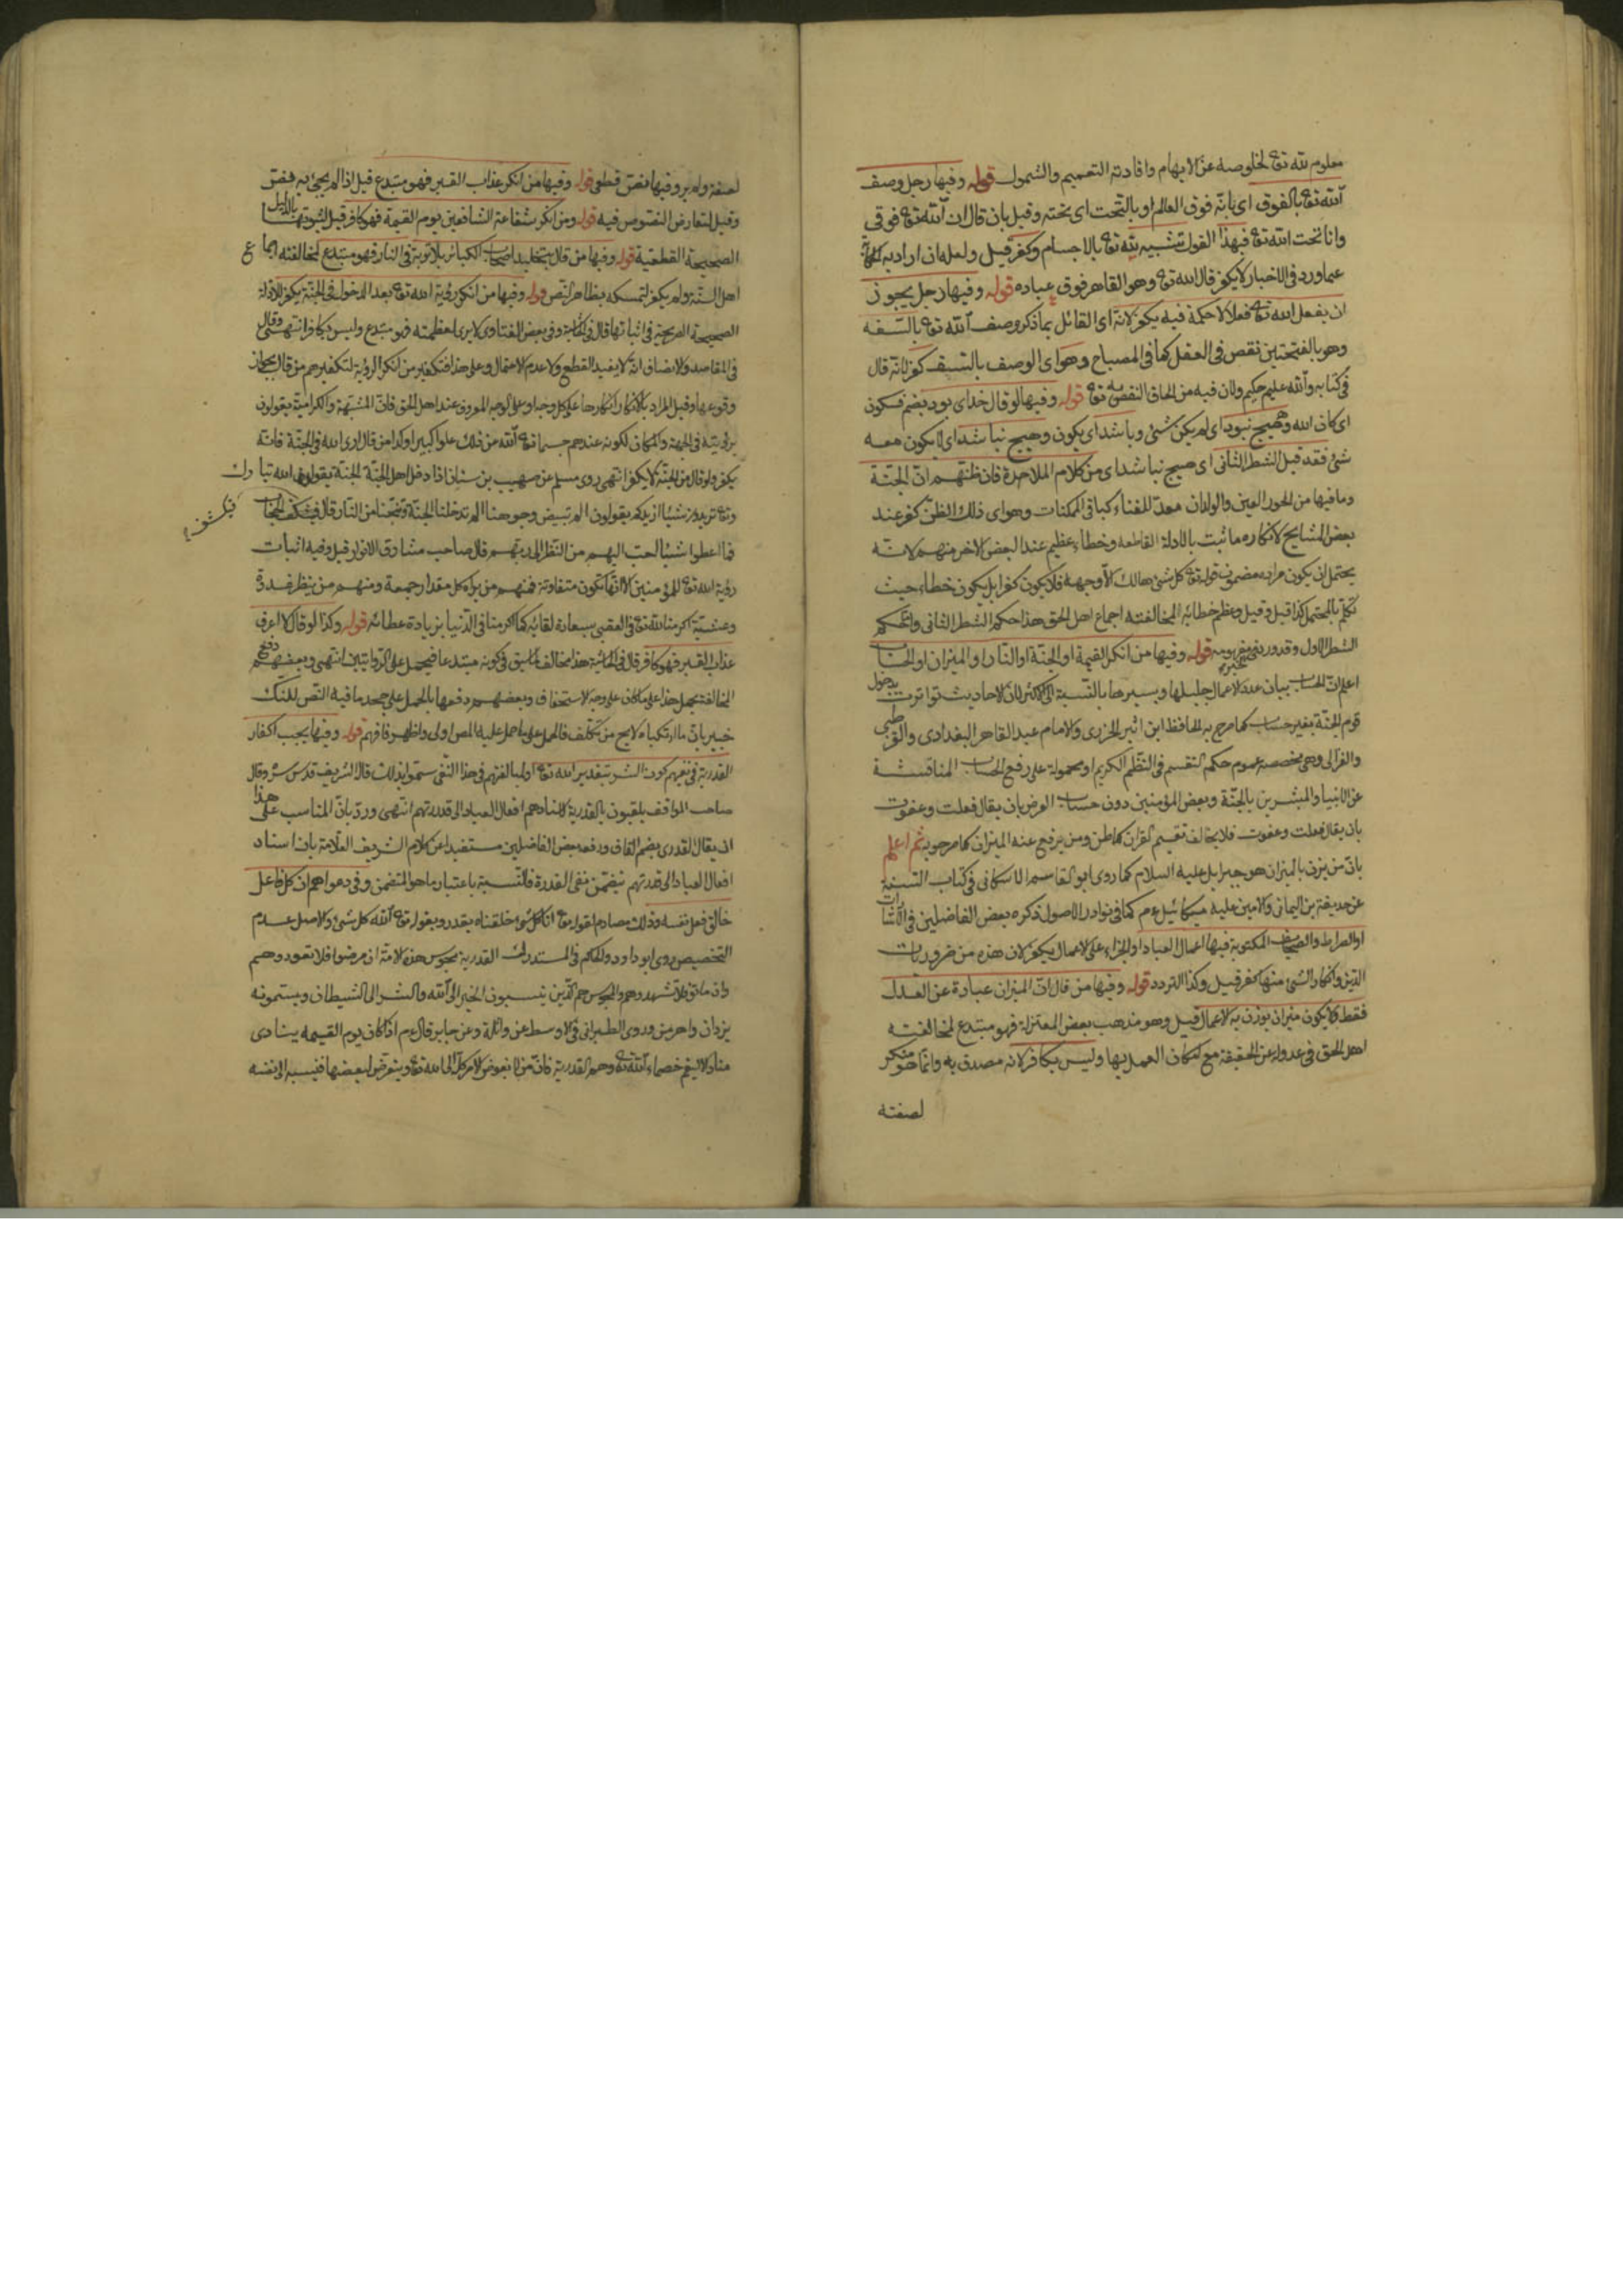 معلوم لله تعا لخلوصه عن الايهام وافادته التعميم والشمول قوله وفيها رجل وصف
الله تعا بالفوق اى بانه فوق العالم او بالتحت اى تحته وقيل بان قال ان الله تعا فوقى
وانا تحت الله تعا فبهذا القول تشبيه لله تعا بالاجسام وكفر قيل ولعله ان اراد به
عما ورد فى الاخبار لا يكفر قال الله تعا وهو القاهر فوق عباده قوله وفيها رجل يجوز
ان يفعل الله تعا فعلا لا حكمة فيه يكفر لانه اى القائل بما ذكر وصف الله تعا بالسفه
وهو بالفتحتين نقص فى العقل كما فى المصباح وهو اى الوصف بالسفه كفر لانه قال
فى كتابه والله عليم حكيم ولان فيه من الحاق النقص به تعا قوله وفيها لو قال خداى بود بضم فسكون
اى كان الله وهيچ نبود اى لم يكن شئ وباشد اى يكون وهيچ نباشد اى لا يكون معه
شئ فقد قيل الشطر الثانى اى هيچ نباشد اى من كلام الملاحدة فان ظنهم ان الجنة
وما فيها من الحور العين والولدان معد للفناء كباقى الممكنات وهو اى ذلك الظن كفر عند
بعض المشايح لانكاره ما ثبت بالادلة القاطعه وخطاء عظيم عند البعض الاخر منهم لانه
يحتمل ان يكون مراده مضمون قوله تعا كل شئ هالك الا وجهه فلا يكون كفرا بل يكون خطاء حيث
تكلم بالمحتمل كذا قيل وقيل وعظم خطائه لمخالفته اجماع اهل الحق هذا حكم الشطر الثانى
الشطر الاول وقد ورد قوله وفيها من انكر القيمة او الجنة او النار او الميزان او الحساب
اعلم ان الحساب بيان عدد الاعمال جليلها ويسيرها بالنسبة الاحاديث تواترت بدخول
قوم الجنة بغير حساب كما صرح به الحافظ ابن اثير الجزرى والامام عبد القاهر البغدادى والقرطبى
والغزالى وهى مخصصة عموم حكم التقسم فى النظم الكريم او محمولة على رفع الحساب المناقشة
عن الانبيا والمبشرين بالجنة وبعض المؤمنين دون حساب العرض بان يقال فعلت وعفوت
بان يقال فعلت وعفوت فلا يخالف تقسيم القران كما ظن ومن يرفع عنه الميزان كما صرحوا به ثم اعلم
بان من يزن بالميزان هو جبرايل عليه السلام كما روى ابو القاسم فى كتاب السنة
عن حذيفة بن اليمانى والامين عليه ميكائيل ع م كما فى نوادر الاصول ذكره بعض الفاضلين فى
او الصراط والصحائف المكتوبة فيها اعمال العباد او الجزاء على الاعمال يكفر لان هذه من ضروريات
الدين وانكار الشئ منها كفر قيل وكذا التردد قوله وفيها من قال ان الميزان عبادة عن العدل
فقط فلا يكون ميزان يوزن به الاعمال قيل وهو مذهب بعض المعتزلة فهو مبتدع لمخالفته
اهل الحق فى عدوله عن الحقيقة مع امكان العمل بها وليس بكافر لانه مصدق به وانما هو منكر
لصفته
لصفته ولم ير وفيها نص قطعى قوله وفيها من انكر عذاب القبر فهو مبتدع قيل اذا لم يجئ به
وقيل لتعارض النصوص فيه قوله ومن انكر شفاعة الشافعين يوم القيمة فهو كافر قيل لثبوتها بالدلائل
الصحيحة القطعية قوله وفيها من قال بتخليد اصحاب الكبائر بلا توبة فى النار فهو مبتدع لمخالفته
اهل السنة ولم يكفر لتمسكه بظاهر النص قوله وفيها من انكر رؤية الله تعا بعد الدخول فى الجنة يكفر
الصحيحة الصريحة فى اثباتها قال فى وفى بعض الفتاوى لا يرى لعظمته فهو مبتدع وليس بكافر انتهى وقال
فى المقاصد والانصاف انه لا يفيد القطع ولا عدم الاحتمال وعلى هذا فتكفير من انكر الرؤية لتكفيرهم من قال
وقوعها وقيل المراد بالانكار انكارها على كل وجه او على الوجه المعروف عند اهل الحق فان المشبهة والكرامية يقولون
برؤيته فى الجهة والمكان لكونه عندهم جسما تعا الله عن ذلك علوا كبيرا وكذا من قال ارى الله فى الجنة فانه
يكفر ولو قال من الجنة لا يكفر انتهى روى مسلم عن صهيب بن سنان اذا دخل اهل الجنة الجنة يقول الله تبارك
وتعا تريدون شيئا ازيدكم يقولون الم تبيض وجوهنا الم تدخلنا الجنة وتنجنا من النار قال فيكشف الحجاب
فما اعطوا شيئا احب اليهم من النظر الى ربهم قال صاحب مشارق الانوار قيل وفيه اثبات
رؤية الله تعا للمؤمنين الا انها تكون متفاوتة فمنهم من يراه كل مقدار جمعة ومنهم من ينظر غدوة
وعشية اكرمنا الله تعا فى العقبى بسعادة لقائه كما اكرمنا فى الدنيا بزيادة عطائه قوله وكذا لو قال لا اعرف
عذاب القبر فهو كافر قال فى هذا مخالف لما سبق فى كونه مبتدعا فيحمل على الروايتين انتهى وبعضهم دفع
المخالفة بحمل هذا على ما كان على وجه الاستخفاف وبعضهم دفعها بالحمل على جحد ما فيه النص لكنك
خبير بان ما ارتكباه لا يخ من تكلف فالحمل على ما حمل عليه المص اولى واظهر فافهم قوله وفيها يجب اكفار
القدرية فى نفيهم كون الشر بتقدير الله تعا اولمبالغتهم فى هذا النفى سموا بذلك قال الشريف قدس سره وقال
صاحب المواقف يلقبون بالقدرية لاسنادهم افعال العباد الى قدرتهم انتهى ورد بان المناسب على هذا
ان يقال القدرى بضم القاف ودفعه بعض الفاضلين مستفيدا عن كلام الشريف العلامة بان اسناد
افعال العباد الى قدرتهم يتضمن نفى القدرة فالنسبة باعتبار ما هو المتضمن وفى دعواهم ان كل فاعل
خالق فعل نفسه وذلك مصادم لقوله تعا انا كل شئ خلقناه بقدر وبقوله تعا الله كل شئ والاصل عدم
التخصيص روى ابو داود والحاكم فى المستدرك القدرية مجوس هذه الامة ان مرضوا فلا تعودوهم
وان ماتوا فلا تشهدوهم والمجوس هم الذين ينسبون الخير الى الله والشر الى الشيطان ويسمونه
يزدان واهرمن وروى الطبرانى فى الاوسط عن واثلة وعن جابر قال ع م اذا كان يوم القيمه ينادى
مناد الا ليقم خصماء الله تعا وهم القدرية فان من لا يفوض الامر كله الى الله تعا ويتعرض لبعضها فينسبه الى نفسه